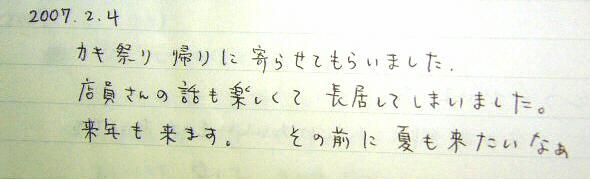 2007.2.4
カキ祭り 帰りに 寄らせてもらいました.
店員さんの話も楽しくて 長居してしまいました。
来年も来ます。 その前に 夏も来たいなぁ